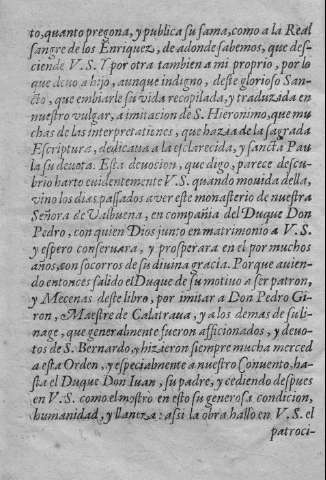 to, quanto pregona, y publica su fama, como a la Real
sangre de los Enriquez, de adonde sabemos, que des-
ciende V. S. Y por otra tambien a mi proprio, por lo
que deuo a hijo, aunque indigno, deste glorioso San-
cto, que embiarle su vida recopilada, y traduzida en
nuestro vulgar, a imitacion de S. Hieronimo, que mu
chas de las interpretationes, que hazia de la sagrada
Escriptura, dedicaua a la esclarecida, y sancta Pau
la su deuota. Esta deuocion, que digo, parece descu-
brio harto euidentemente V. S. quando mouida della,
vino los dias passados a ver este monasterio de nuestra
Señora de Valbuena, en compañia del Duque Don
Pedro, con quien Dios junto en matrimonio a V. S.
y espero conseruara, y prosperara en el por muchos
años, con socorros de su diuina gracia. Porque auien-
do entonces salido el Duque de su motiuo a ser patron,
y Mecenas deste libro, por imitar a Don Pedro Gi-
ron, Maestre de Calatraua, y a los demas de su li-
nage, que generalmente fueron afficionados, y deuo-
tos de S. Bernardo, y hizieron siempre mucha merced
a esta Orden, y especialmente a nuestro Conuento, ha-
sta el Duque Don Iuan, su padre, y cediendo despues
en V. S. como el mostro en esto su generosa condicion,
humanidad, y llaneza: assi la obra hallo en V. S. el
patroci-